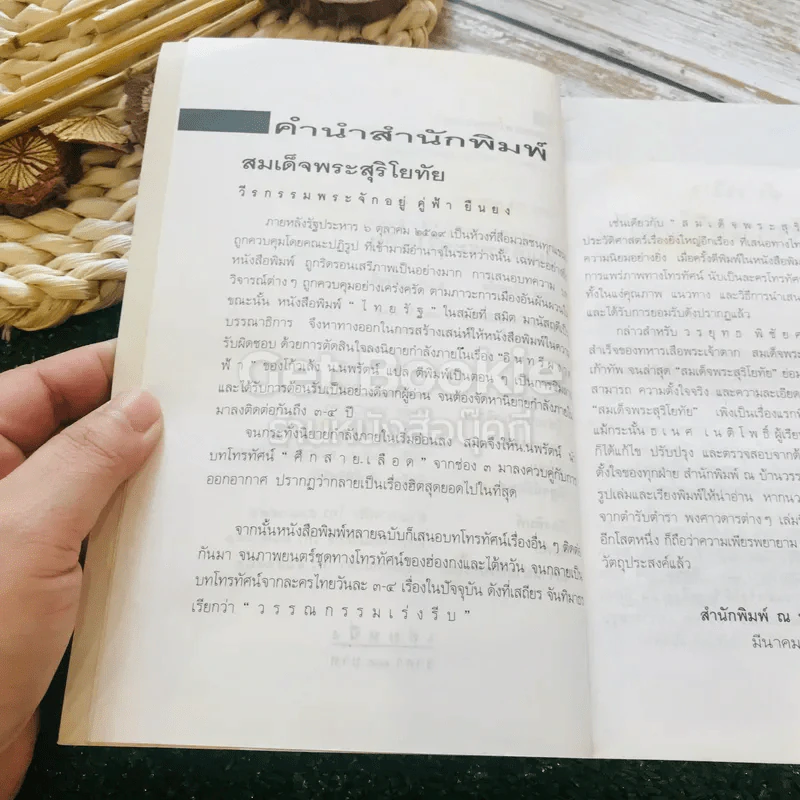 คำนำสำนักพิมพ์
สมเด็จพระสุริโยทัย
วีรกรรมพระจักอยู่ คู่ฟ้า ยืนยง
ภายหลังรัฐประหาร ๖ ตุลาคม ๒๕๑๙ เป็นห้วงที่สื่อมวลชนทุกแขนง
ถูกควบคุมโดยคณะปฏิรูป ที่เข้ามามีอำนาจในระหว่างนั้น เฉพาะอย่างยิ่ง
หนังสือพิมพ์ ถูกริดรอนเสรีภาพเป็นอย่างมาก การเสนอบทความ
วิจารณ์ต่างๆ ถูกควบคุมอย่างเคร่งครัด ตามภาวะการเมืองอันผันผวนใน
ขณะนั้น หนังสือพิมพ์ "ไทยรัฐ" ในสมัยที่ สมิต มานัสฤดี เป็น
บรรณาธิการ จึงหาทางออกในการสร้างเสน่ห์ให้หนังสือพิมพ์ในความ
รับผิดชอบ ด้วยการตัดสินใจลงนิยายกำลังภายในเรื่อง "อินทรี
ฟ้า" ของโก้วเล้ง น.นพรัตน์ แปล ตีพิมพ์เป็นตอน ๆ เป็นการชิมลาง
และได้รับการต้อนรับเป็นอย่างดีจากผู้อ่าน จนต้องจัดหานิยายกำลังภายใน
มาลงติดต่อกันถึง ๓-๔ ปี
จนกระทั่งนิยายกำลังภายในเริ่มอ่อนลง สมิตจึงให้ น.นพรัตน์
บทโทรทัศน์ "ศึกสายเลือด" จากช่อง ๓ มาลงควบคู่กับการ
ออกอากาศ ปรากฏว่ากลายเป็นเรื่องฮิตสุดยอดไปในที่สุด
จากนั้นหนังสือพิมพ์หลายฉบับก็เสนอบทโทรทัศน์เรื่องอื่น ๆ ติดต่อ
กันมา จนภาพยนตร์ชุดทางโทรทัศน์ของฮ่องกงและไต้หวัน จนกลายเป็น
บทโทรทัศน์จากละครไทยวันละ ๓-๔ เรื่องในปัจจุบัน ดังที่เสถียร จันทิมาธร
เรียกว่า "วรรณกรรมเร่งรีบ"
เช่นเดียวกับ "สมเด็จพระสุริ
ประวัติศาสตร์เรื่องยิ่งใหญ่อีกเรื่อง ที่เสนอทางโท
ความนิยมอย่างยิ่ง เมื่อครั้งตีพิมพ์ในหนังสือพิม
การแพร่ภาพทางโทรทัศน์ นับเป็นละครโทรทัศ
ทั้งในแง่คุณภาพ แนวทาง และวิธีการนำเสน
และได้รับการยอมรับดังปรากฏแล้ว
กล่าวสำหรับ วรยุทธ พิชัย
สำเร็จของทหารเสือพระเจ้าตาก สมเด็จพระ
เก้าทัพ จนล่าสุด "สมเด็จพระสุริโยทัย" ย่อม
สามารถ ความตั้งใจจริง และความละเอียด
"สมเด็จพระสุริโยทัย" เพิ่งเป็นเรื่องแรกที่
แม้กระนั้น ธเนศ เนติโพธิ์ ผู้เรีย
ก็ได้แก้ไข ปรับปรุง และตรวจสอบจากต้
ตั้งใจของทุกฝ่าย สำนักพิมพ์ ณ บ้านวรร
รูปเล่มและเรียงพิมพ์ให้น่าอ่าน หากนว
จากตำรับตำรา พงศาวดารต่างๆ เล่มนี้
อีกโสตหนึ่ง ก็ถือว่าความเพียรพยายาม
วัตถุประสงค์แล้ว
สำนักพิมพ์ ณ
มีนาคม
Get Bookie
ร้านหนังสือบุ๊คกี้